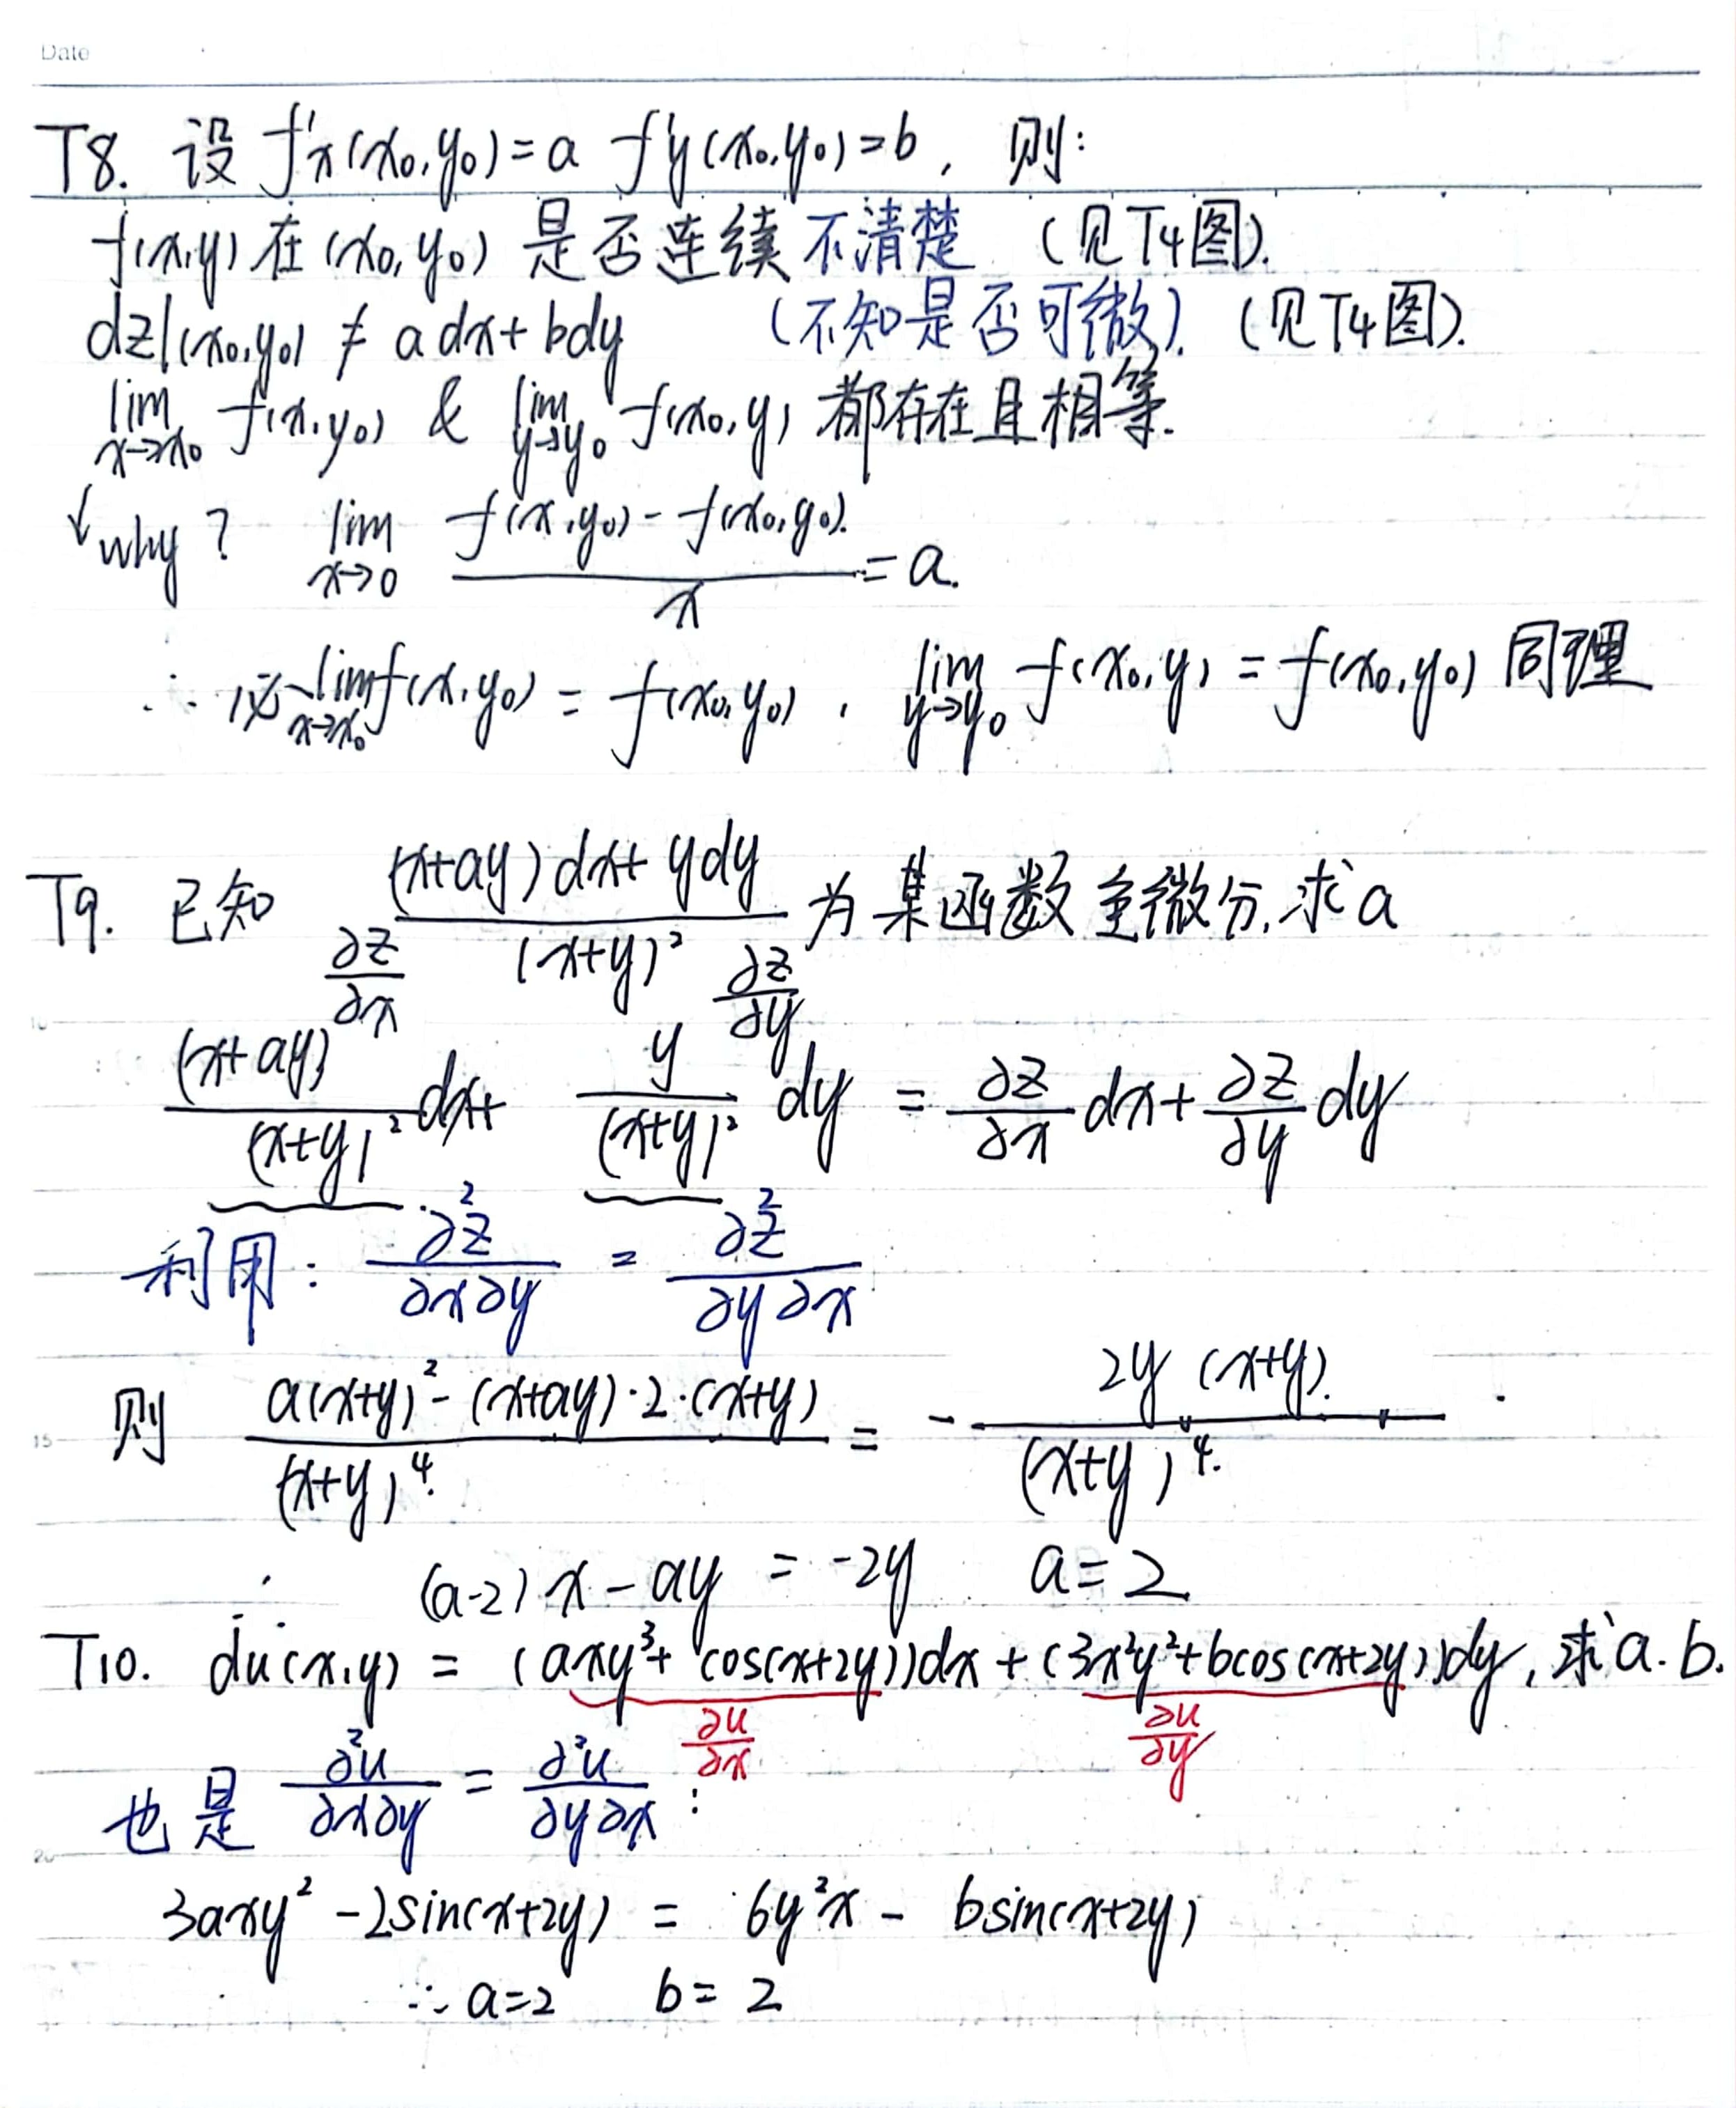 Date
T8. 设 f'x(x₀,y₀)=a f'y(x₀,y₀)=b, 则:
f(x,y) 在 (x₀,y₀) 是否连续 不清楚 (见T4图).
dz|(x₀,y₀) ≠ adx+bdy (不知是否可微). (见T4图).
lim x→x₀ f(x,y₀) & lim y→y₀ f(x₀,y) 都存在且相等.
↓why? lim x→0 (f(x,y₀)-f(x₀,y₀))/x = a.
∴ 必 lim x→x₀ f(x,y₀) = f(x₀,y₀), lim y→y₀ f(x₀,y) = f(x₀,y₀) 同理
T9. 已知 ((x+ay)dx+ydy)/(x+y)² 为某函数全微分,求a
∂z/∂x ∂z/∂y
(x+ay)/(x+y)² dx+ y/(x+y)² dy = ∂z/∂x dx+ ∂z/∂y dy
利用: ∂²z/∂x∂y = ∂²z/∂y∂x
则 (a(x+y)²-(x+ay)·2·(x+y))/(x+y)⁴ = - 2y(x+y)/(x+y)⁴
∴ (a-2)x-ay = -2y a=2
T10. du(x,y) = (axy³+cos(x+2y))dx+(3x²y²+bcos(x+2y))dy, 求a.b.
∂u/∂x ∂u/∂y
也是 ∂²u/∂x∂y = ∂²u/∂y∂x:
3axy² -2sin(x+2y) = 6y²x - bsin(x+2y)
∴ a=2 b=2